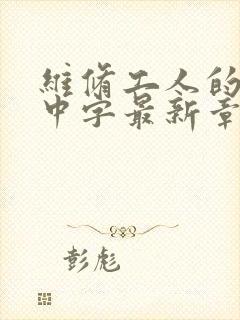 維脩工人的
中字最新章
彭彪